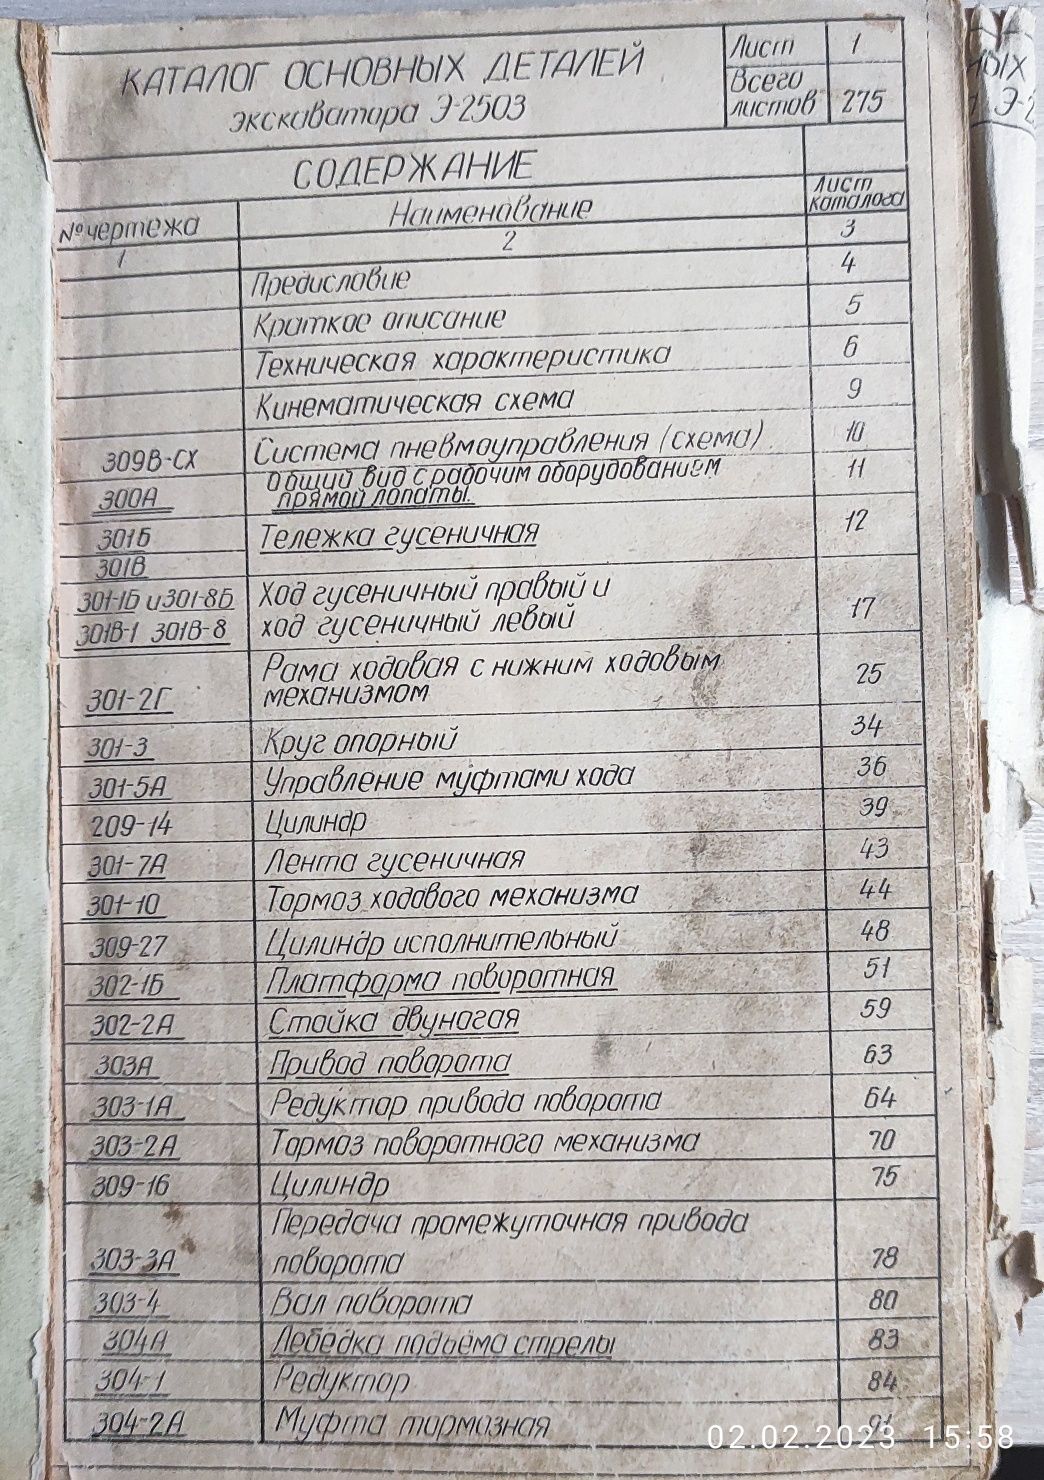 КАТАЛОГ ОСНОВНЫХ ДЕТАЛЕЙ
экскаватора Э-2503
Лист 1
Всего
листов 275
СОДЕРЖАНИЕ
№ чертежа Наименование Лист
каталога
1 2 3
Предисловие 4
Краткое описание 5
Техническая характеристика 6
Кинематическая схема 9
309В-СХ Система пневмоуправления (схема) 10
300А общий вид с рабочим оборудованием 11
прямой лопаты.
301Б Тележка гусеничная 12
301В
301-1Б и 301-8Б Ход гусеничный правый и
301В-1 301В-8 ход гусеничный левый 17
Рама ходовая с нижним ходовым
301-2Г механизмом 25
301-3 Круг опорный 34
301-5А Управление муфтами хода 36
209-14 Цилиндр 39
301-7А Лента гусеничная 43
301-10 Тормоз ходового механизма 44
309-27 Цилиндр исполнительный 48
302-1Б Платформа поворотная 51
302-2А Стойка двуногая 59
303А Привод поворота 63
303-1А Редуктор привода поворота 64
303-2А Тормоз поворотного механизма 70
309-16 Цилиндр 75
Передача промежуточная привода
303-3А поворота 78
303-4 Вал поворота 80
304А Лебедка подъема стрелы 83
304-1 Редуктор 84
304-2А Муфта тормозная 91
02.02.2023 15:58